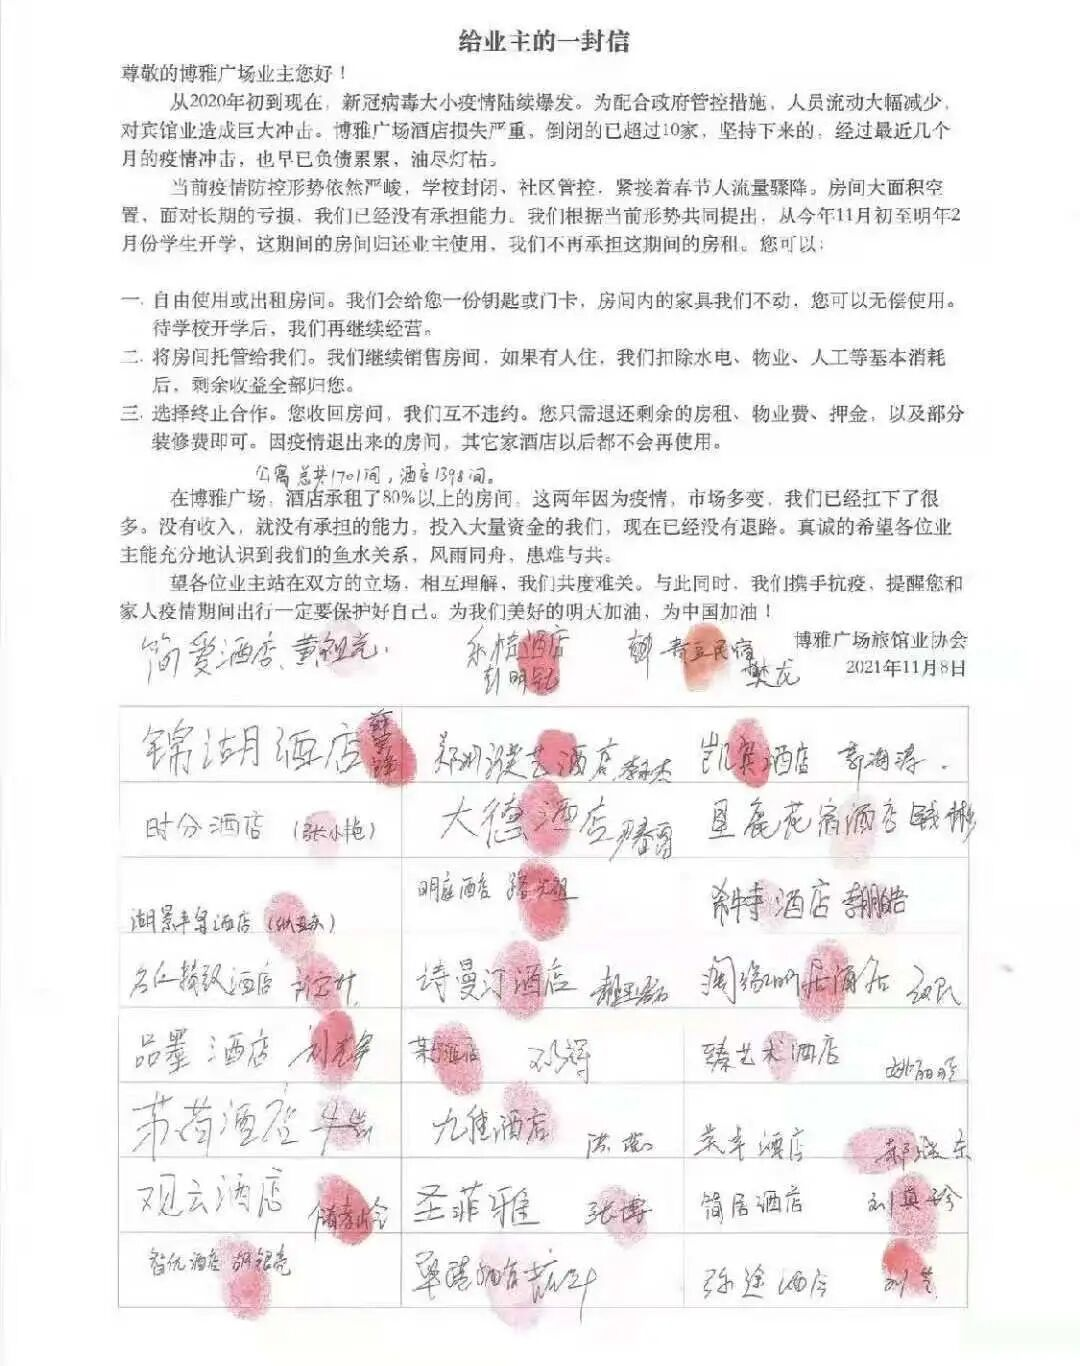 给业主的一封信
尊敬的博雅广场业主您好！
从2020年初到现在，新冠病毒大小疫情陆续爆发。为配合政府管控措施，人员流动大幅减少，
对宾馆业造成巨大冲击。博雅广场酒店损失严重，倒闭的已超过10家，坚持下来的，经过最近几个
月的疫情冲击，也早已负债累累，油尽灯枯。
当前疫情防控形势依然严峻，学校封闭、社区管控，紧接着春节人流量骤降。房间大面积空
置，面对长期的亏损，我们已经没有承担能力。我们根据当前形势共同提出，从今年11月初至明年2
月份学生开学，这期间的房间归还业主使用，我们不再承担这期间的房租。您可以：
一. 自由使用或出租房间。我们会给您一份钥匙或门卡，房间内的家具我们不动，您可以无偿使用。
待学校开学后，我们再继续经营。
二. 将房间托管给我们。我们继续销售房间，如果有人住，我们扣除水电、物业、人工等基本消耗
后，剩余收益全部归您。
三. 选择终止合作。您收回房间，我们互不违约。您只需退还剩余的房租、物业费、押金，以及部分
装修费即可。因疫情退出来的房间，其它家酒店以后都不会再使用。
公寓总共1701间，酒店1398间。
在博雅广场，酒店承租了80%以上的房间，这两年因为疫情，市场多变，我们已经扛下了很
多。没有收入，就没有承担的能力，投入大量资金的我们，现在已经没有退路。真诚的希望各位业
主能充分地认识到我们的鱼水关系，风雨同舟，患难与共。
望各位业主站在双方的立场，相互理解，我们共度难关。与此同时，我们携手抗疫，提醒您和
家人疫情期间出行一定要保护好自己。为我们美好的明天加油，为中国加油！
博雅广场旅馆业协会
2021年11月8日
简爱酒店 黄
酒店 彭明
民宿 樊龙
锦湖酒店
艺酒店
凯宾酒店 海涛
时分酒店（张小艳）
大德酒店
花宿酒店
湖景 酒店
明庭酒店
希特酒店 李鹏皓
酒店
诗曼汀酒店
品墨酒店 刘
酒店 邓
臻艺术酒店 姚丽
酒店
九佳酒店 洪
酒店
观云酒店
圣菲雅 张博
简居酒店 刘
智优酒店 胡银亮
酒店
弥途酒店 刘